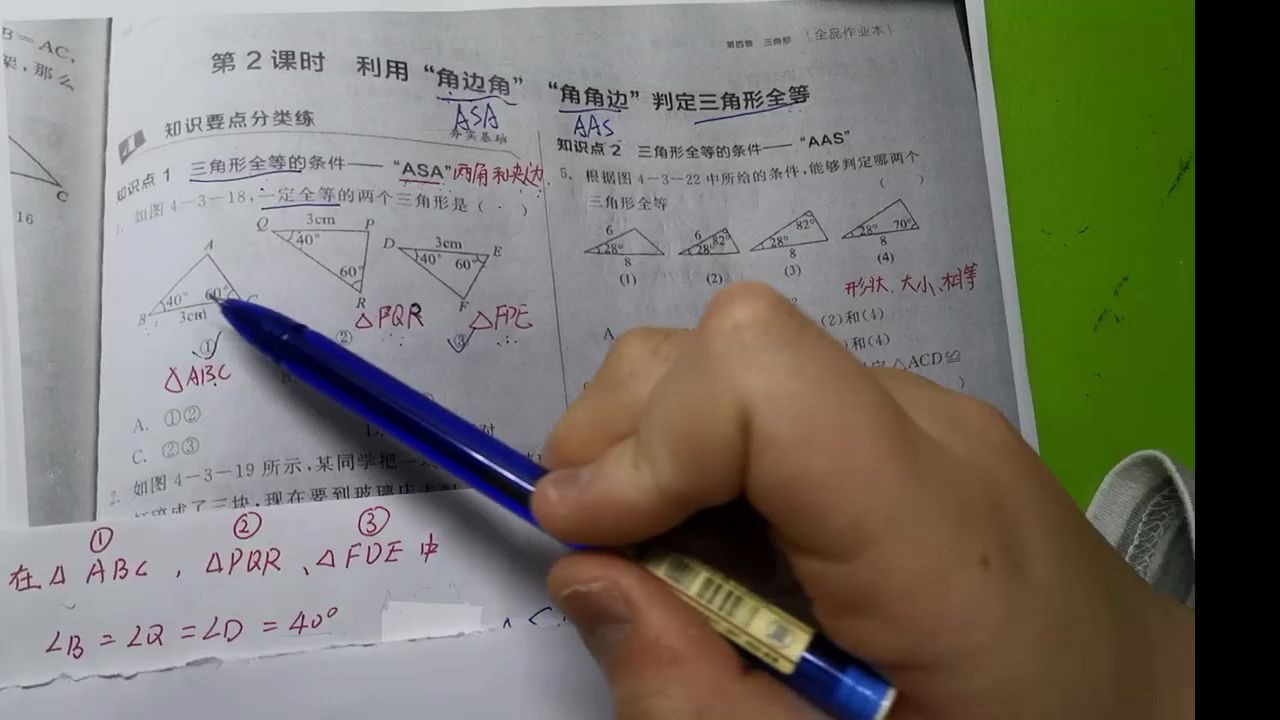 B=AC,
架,那么
C
16
第四章 三角形 〔全品作业本〕
第2课时 利用“角边角”“角角边”判定三角形全等
ASA AAS
知识要点分类练 夯实基础
知识点1 三角形全等的条件——“ASA”两角和夹边
1. 如图4-3-18,一定全等的两个三角形是( )
Q 3cm P
40°
60°
R
D 3cm E
40° 60°
F
A
40° 60°
B 3cm C
① ② ③
△ABC △PQR △FDE
A. ①②
C. ②③ 对
2. 如图4-3-19所示,某同学把一
成了三块,现在要到玻璃店去
知识点2 三角形全等的条件——“AAS”
5. 根据图4-3-22中所给的条件,能够判定哪两个
三角形全等 ( )
6 28° 8
6 28° 82°
28° 82° 8
28° 70° 8
(1) (2) (3) (4)
形状、大小、相等
A (2)和(4)
和(4)
△ACD≌
)
① ② ③
在△ABC,△PQR、△FDE中
∠B=∠Q=∠D=40°